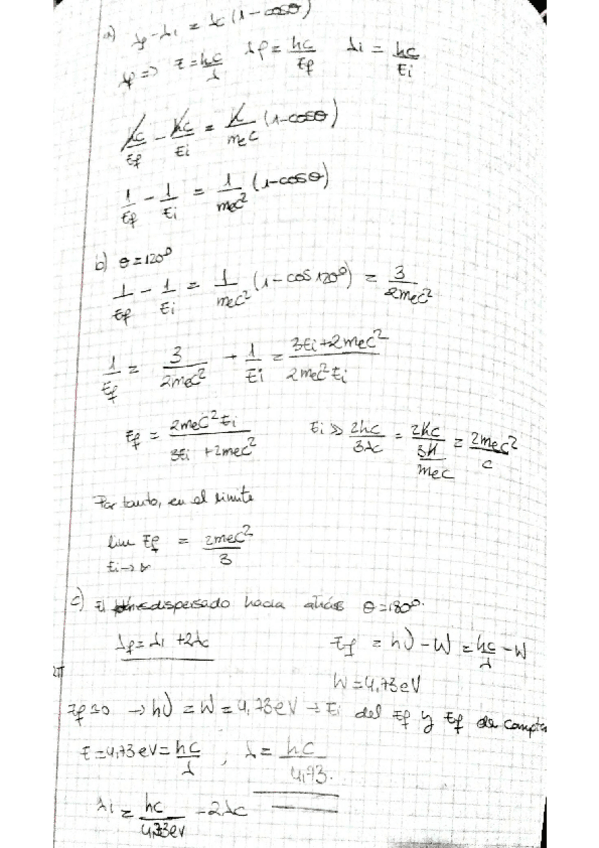 a) λf - λi = λc (1 - cosθ)
λf => E = hc/λ   λf = hc/Ef   λi = hc/Ei
hc/Ef - hc/Ei = h/mec (1-cosθ)
1/Ef - 1/Ei = 1/mec² (1-cosθ)
b) θ = 120º
1/Ef - 1/Ei = 1/mec² (1 - cos 120º) = 3/2mec²
1/Ef = 3/2mec² + 1/Ei = 3Ei + 2mec²/2mec²Ei
Ef = 2mec²Ei/3Ei + 2mec²   Ei >> 2hc/3λc = 2hc/3h/mec = 2mec²/c
Por tanto, en el limite
lim Ef = 2mec²/3
Ei→∞
c) El dispersado hacia atrás θ = 180º.
λf = λi + 2λc   Ef = hν - W = hc/λ - W
W = 4,73 eV
Ef=0 → hν = W = 4,73 eV → Ei del Ef y Ef de compton
E = 4,73 eV = hc/λ ; λ = hc/4,73.
λi = hc/4,73eV - 2λc